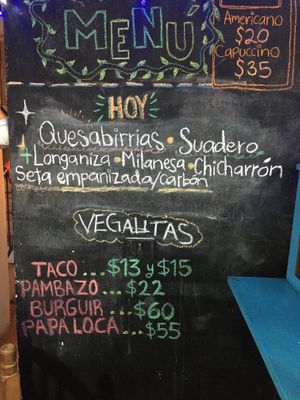 MENÚ
Americano
$20
Capuccino
$35
HOY
Quesabirrias • Suadero
Longaniza • Milanesa • Chicharrón
Seta empanizada/carbón
VEGALITAS
TACO... $13 y $15
PAMBAZO... $22
BURGUIR... $60
PAPA LOCA... $55